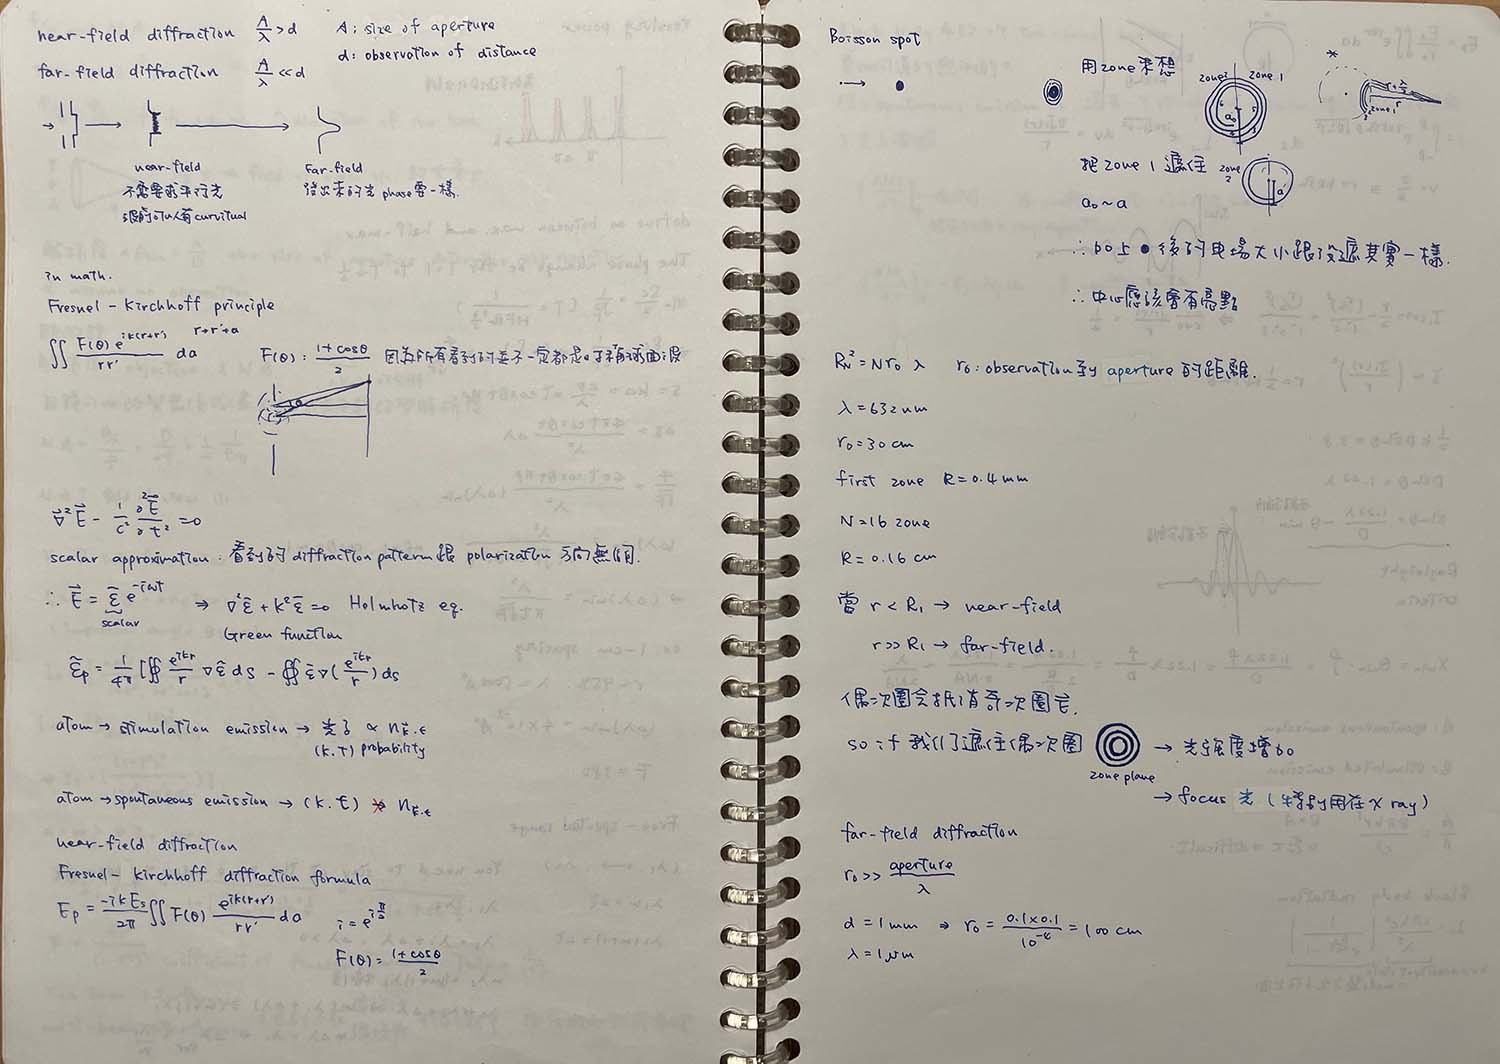 near-field diffraction A/λ > d   A: size of aperture
d: observation of distance
far-field diffraction A/λ << d
near-field
不需要求平行光
很前可以有curvitual
far-field
後出來的光 phase要一樣.
in math.
Fresnel-Kirchhoff principle
∬ F(θ) e^{ik(r+r')} / rr' da   r+r'+a
F(θ): (1+cosθ)/2 因為所有看到的並不一定都是
θ
∇⃗²E⃗ - (1/c²) ∂²E⃗/∂t² = 0
scalar approximation: 看到的 diffraction pattern 跟 polarization 方向無關.
∴ E⃗ = ε̃ e^{-iωt} ⇒ ∇²ε̃ + k²ε̃ = 0 Helmhotz eq.
scalar
Green function
ε̃p = 1/4π [∯ e^{ikr}/r ∇ε̃ ds - ∯ ε̃∇(e^{ikr}/r) ds
atom → stimulation emission → 光子 ∝ n_{k.ε}
(k.T) probability
atom → spontaneous emission → (k.ε) n_{k.ε}
near-field diffraction
Fresnel-Kirchhoff diffraction formula
Ep = -ikEs/2π ∬ F(θ) e^{ik(r+r')}/rr' da   i = e^{iπ/2}
F(θ) = (1+cosθ)/2
Boisson spot
用zone來想
zone2 zone 1
a₀
r+λ/2
r
zone 1
把 zone 1 遮住 zone 2
a'
a₀ ~ a
∴ 加上 ● 後的電場大小跟沒遮其實一樣.
∴ 中心應該會有亮點
R_N² = N r₀ λ   r₀: observation到 aperture 的距離.
λ = 632 nm
r₀ = 30 cm
first zone R = 0.4 mm
N = 16 zone
R = 0.16 cm
當 r < R₁ → near-field
r >> R₁ → far-field.
偶次圈會抵消奇次圈 E⃗.
so if 我們遮住偶次圈 → 光強度增加
zone plane
→ focus 光 (特別用在 X ray)
far-field diffraction
r₀ >> aperture/λ
d = 1 mm ⇒ r₀ = (0.1×0.1)/10⁻⁴ = 100 cm
λ = 1 μm